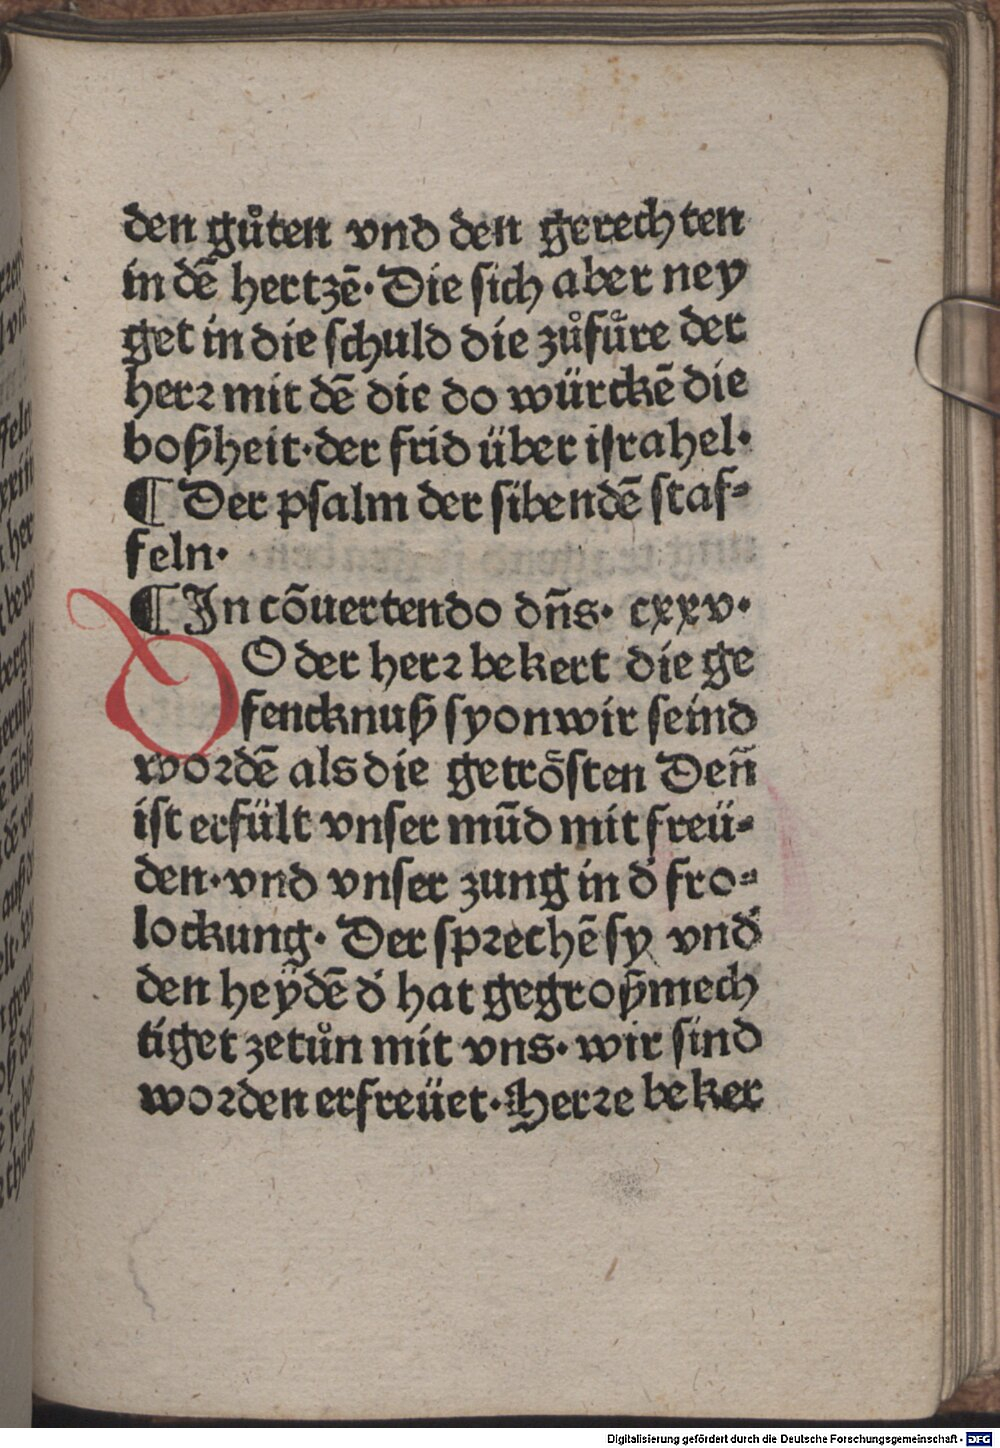 den gůten vnd den gerechten
in dē hertzē· Die sich aber ney
get in die schuld die zůfůre der
herꝛ mit dē die do würckē die
boßheit· der frid über israhel·
¶ Der psalm der sibendē staf⸗
feln·
¶ In cōuertendo dn̄s· cxxv·
DO der herꝛ bekert die ge
fencknuß syon wir seind
woꝛdē als die getrösten Den̄
ist erfült vnser mūd mit freü⸗
den· vnd vnser zung in d' fro⸗
lockung· Der spꝛechē sy vnd'
den heÿdē d' hat gegroßmech
tiget zetůn mit vns· wir sind
woꝛden erfreüet· Herꝛe beker
Digitalisierung gefördert durch die Deutsche Forschungsgemeinschaft - DFG